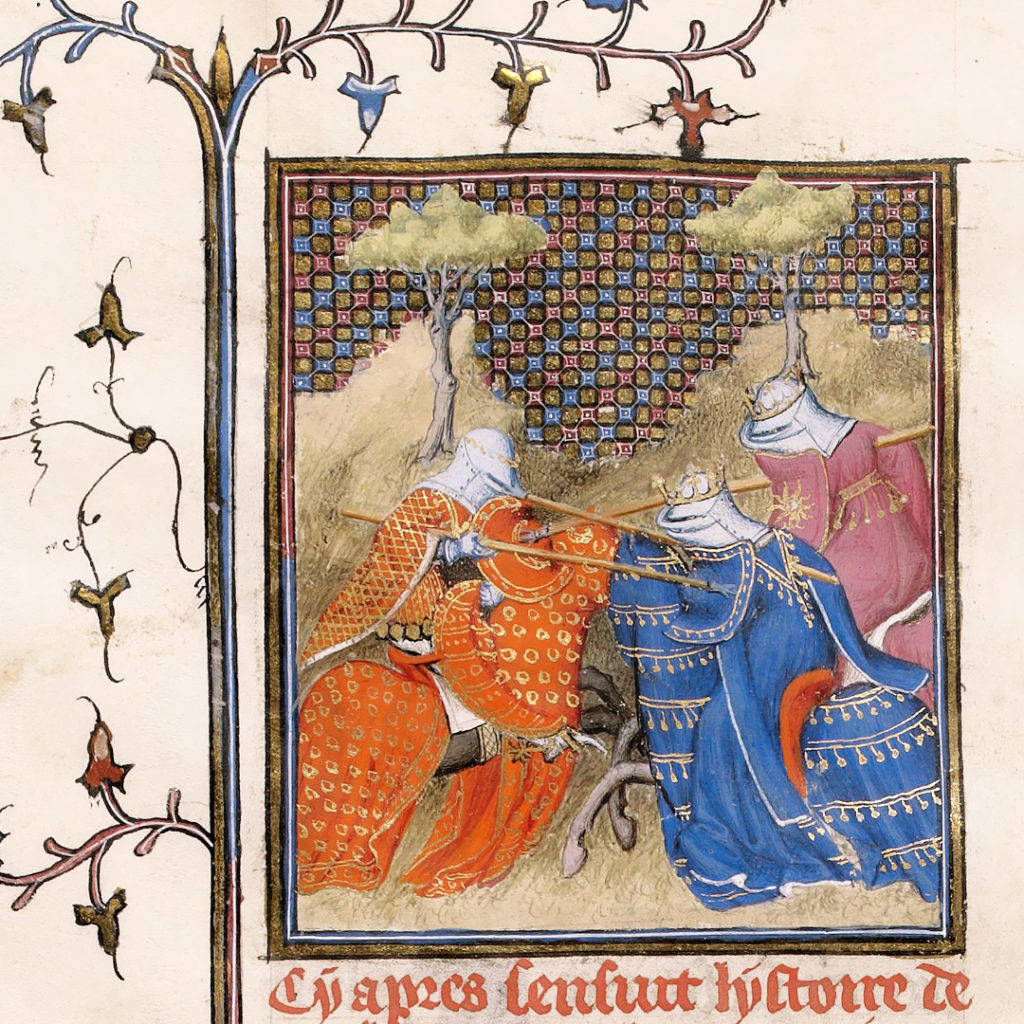 Cy apres sensuit hystoire de